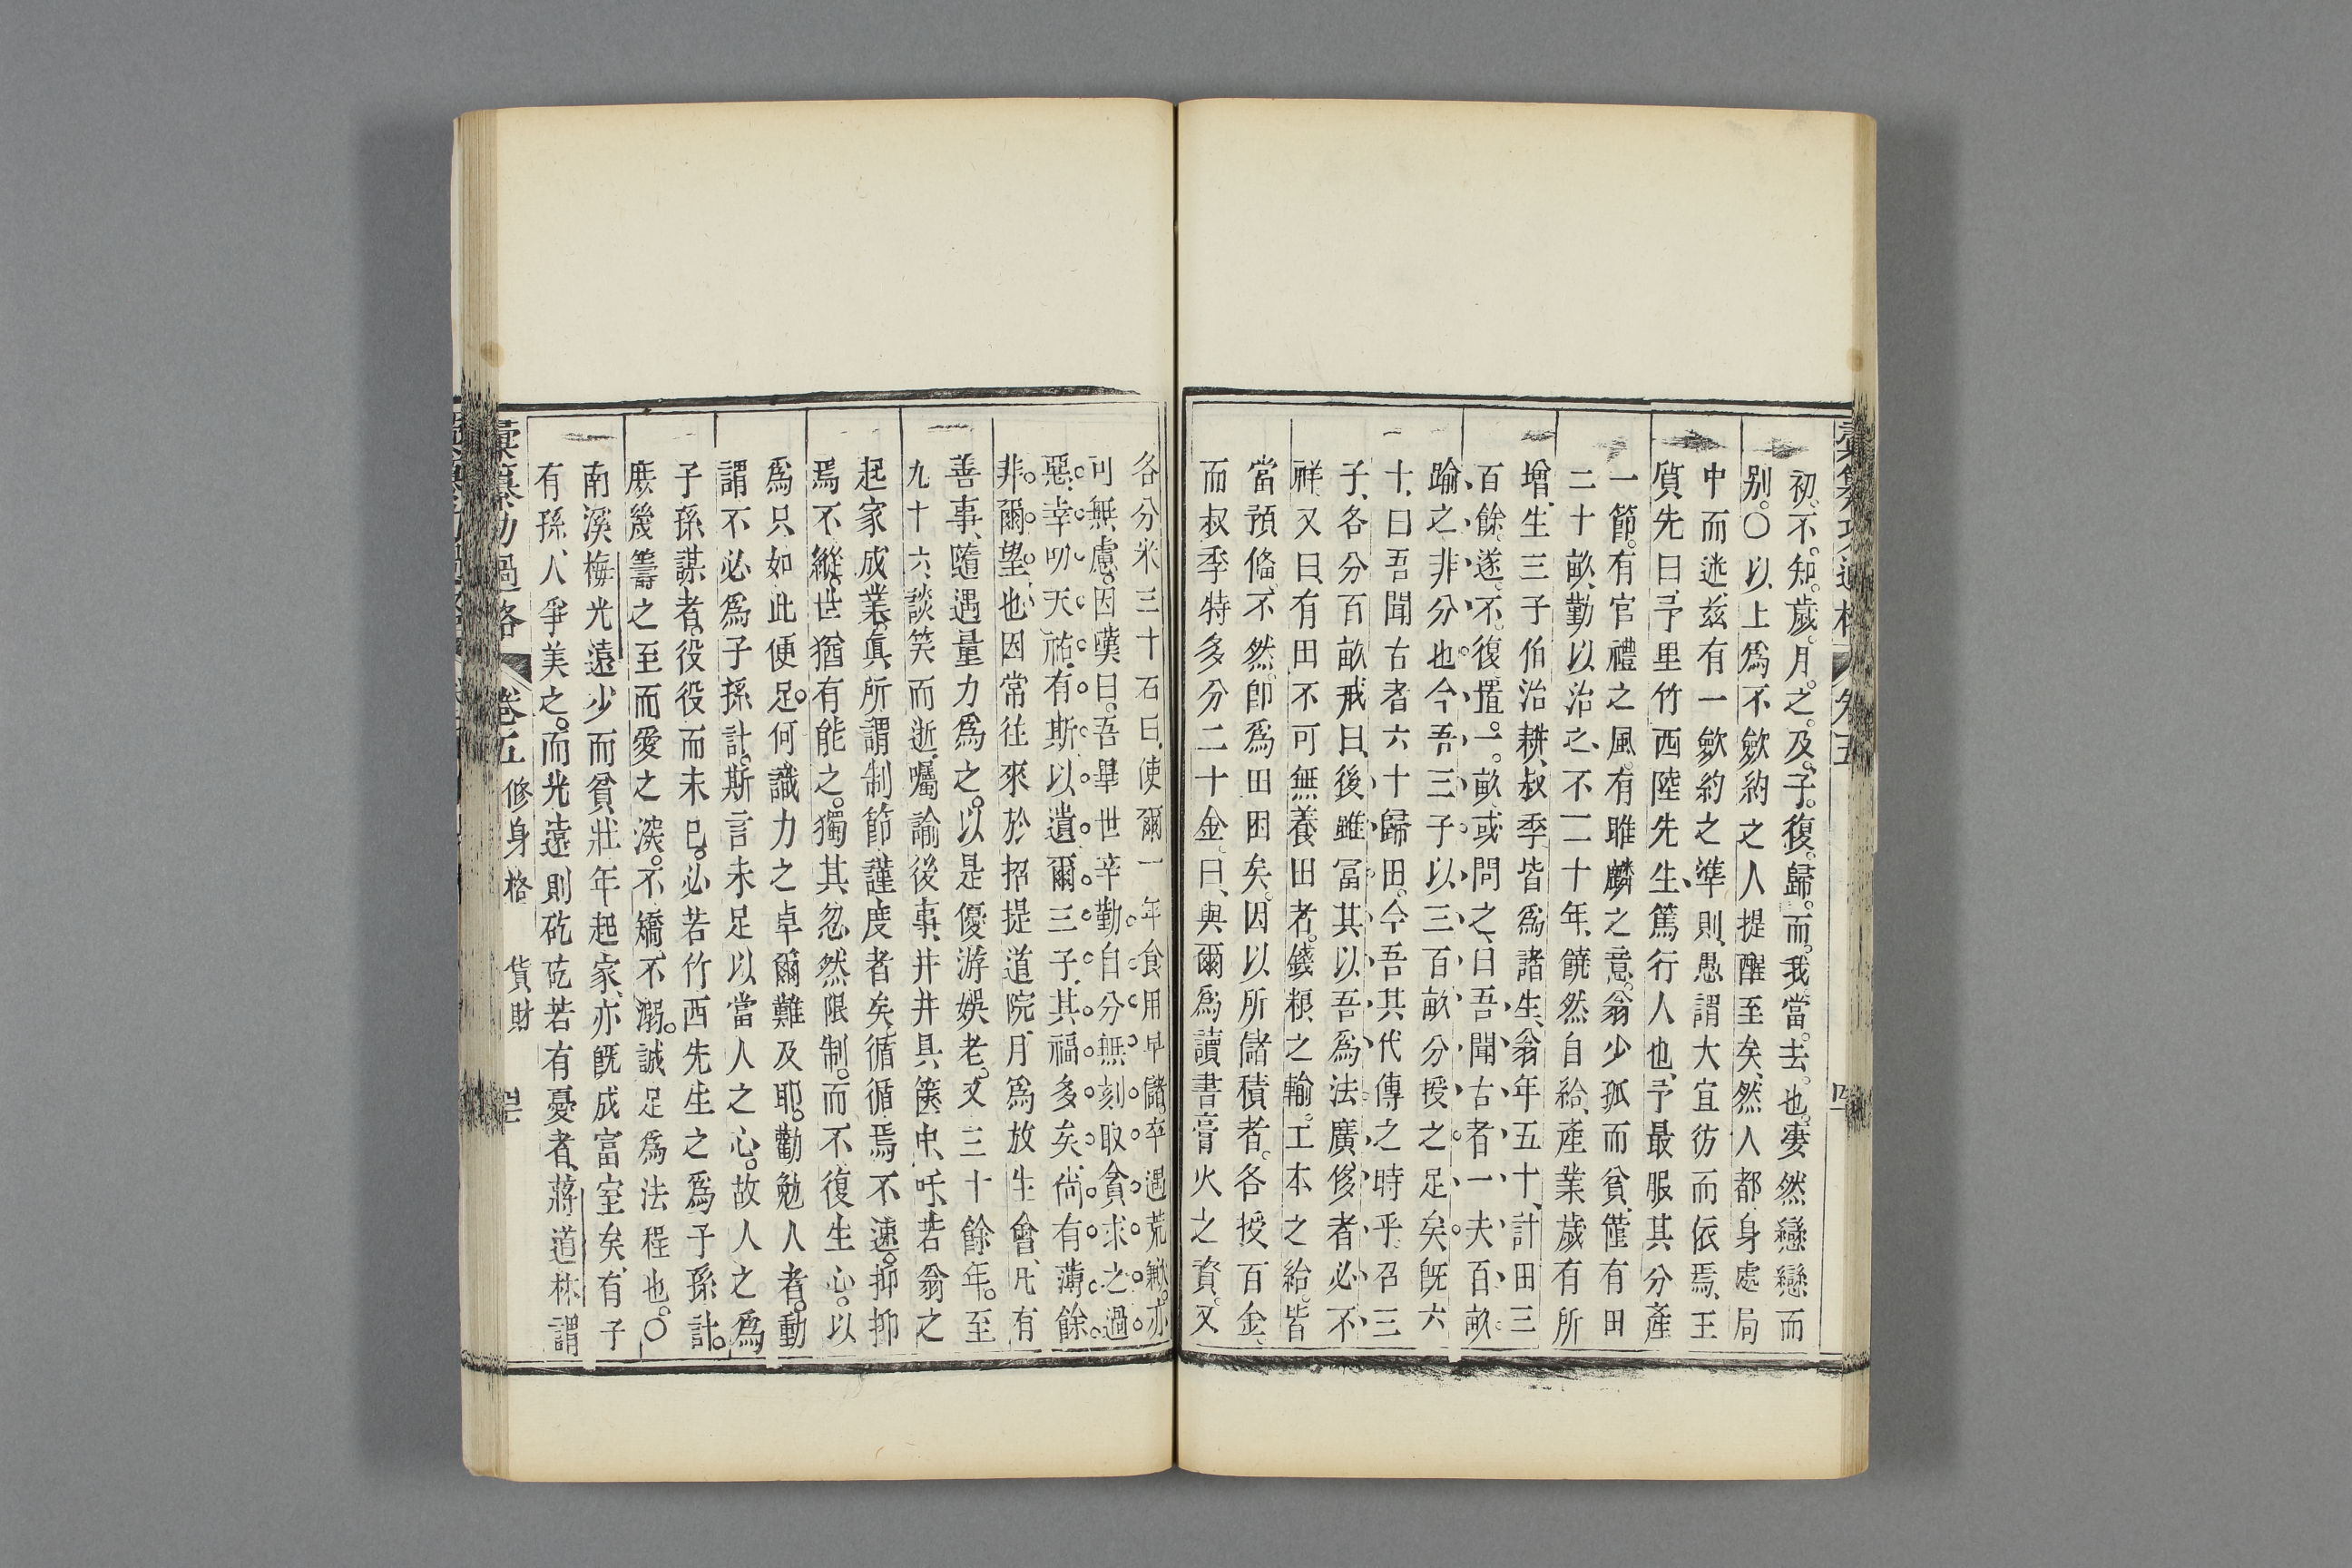 初不知歲月之及子復歸而我當去也悽然戀戀而
別○以上爲不歛約之人提醒至矣然人都身處局
中而迷茲有一歛約之準則愚謂大宜彷而依焉王
質先曰予里竹西陸先生篤行人也予最服其分產
一節有官禮之風有雎麟之意翁少孤而貧僅有田
二十畝勤以治之不二十年饒然自給產業歲有所
增生三子伯治耕叔季皆爲諸生翁年五十計田三
百餘遂不復置一畝或問之曰吾聞古者一夫百畝
踰之非分也今吾三子以三百畝分授之足矣旣六
十曰吾聞古者六十歸田今吾其代傳之時乎召三
子各分百畝戒曰後雖冨其以吾爲法廣侈者必不
祥又曰有田不可無養田者錢粮之輸工本之給皆
當預俻不然卽爲田困矣因以所儲積者各授百金
而叔季特多分二十金曰與爾爲讀書膏火之資又
各分米三十石曰使爾一年食用早儲卒遇荒歉亦
可無慮因嘆曰吾畢世辛勤自分無刻取貪求之過
惡幸叨天祐有斯以遺爾三子其福多矣尚有薄餘
非爾望也因常往來於招提道院月爲放生會凡有
善事隨遇量力爲之以是優游娛老又三十餘年至
九十六談笑而逝囑諭後事井井具篋中吁若翁之
起家成業眞所謂制節謹度者矣循循焉不速抑抑
焉不縱世猶有能之獨其忽然限制而不復生心以
爲只如此便足何識力之卓爾難及耶勸勉人者動
謂不必爲子孫計斯言未足以當人之心故人之爲
子孫謀者役役而未已必若竹西先生之爲子孫計
庶幾籌之至而愛之深不矯不溺誠足爲法程也○
南溪梅光遠少而貧壯年起家亦旣成富室矣有子
有孫人爭美之而光遠則矻矻若有憂者蔣道林謂
彙纂功過格 卷五 修身格 貨財